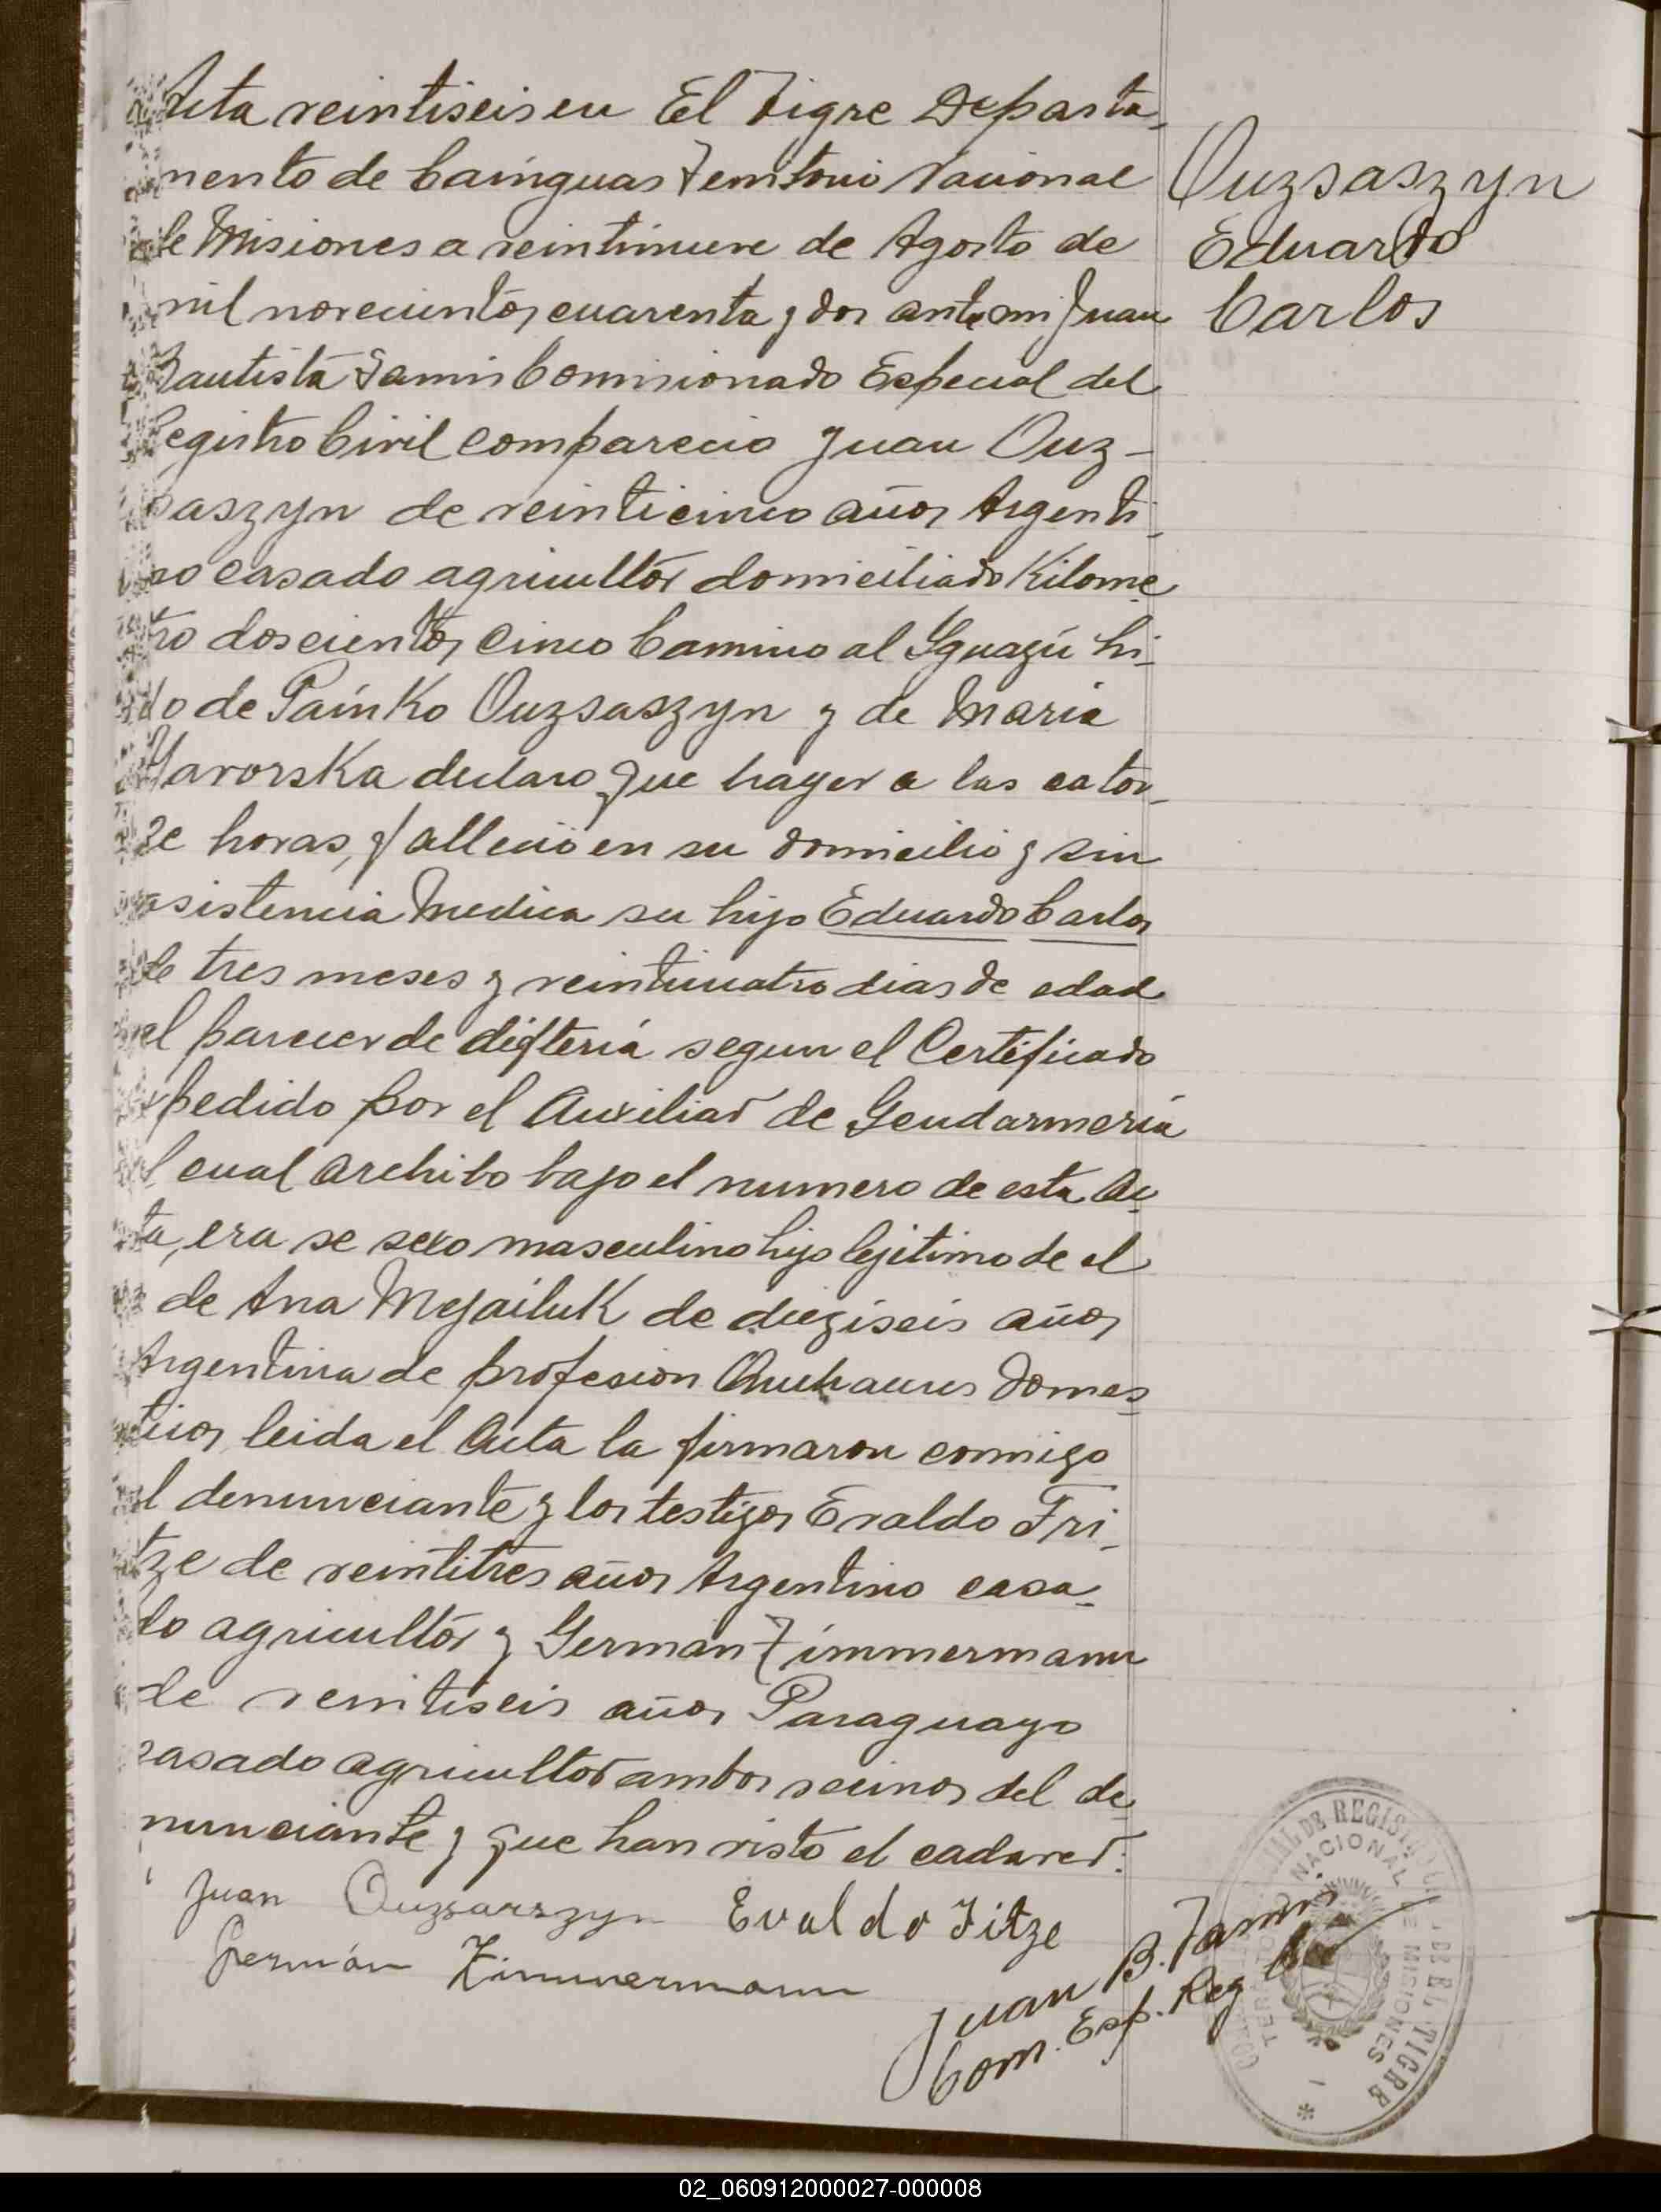 Acta veintiseis en El Tigre Departa-
mento de Cainguas Territorio Nacional
de Misiones a veintinueve de Agosto de
mil novecientos cuarenta y dos ante mi Juan
Bautista Jamin Comisionado Especial del
Registro Civil comparecio Juan Ouz-
saszyn de veinticinco años Argenti-
no casado agricultor domiciliado Kilome-
tro doscientos cinco Camino al Yguazú hi-
jo de Paínko Ouzsaszyn y de Maria
Yavorska declaro que hayer a las cator-
ze horas, fallecio en su domicilio y sin
asistencia Medica su hijo Eduardo Carlos
de tres meses y veinticuatro dias de edad
al parecer de difteria segun el Certificado
expedido por el Auxiliar de Gendarmeria
el cual archibo bajo el numero de esta Ac-
ta, era se sexo masculino hijo lejitimo de el
de Ana Mejailuk de dieziseis años
Argentina de profesion Quehaceres Domes-
ticos leida el Acta la firmaron conmigo
el denunciante y los testigos Evaldo Fri-
tze de veintitres años Argentino casa-
do agricultor y German Zimmermann
de veintiseis años Paraguayo
casado agricultor ambos vecinos del de-
nunciante y que han visto el cadaver.
Juan Ouzsaszyn Evaldo Fitze
Germán Zimmermann
Juan B. Jamin
Com. Esp. Reg
Ouzsaszyn
Eduardo
Carlos
DE REGISTRO CIVIL DE EL TIGRE
TERRITORIO NACIONAL DE MISIONES
02_060912000027-000008